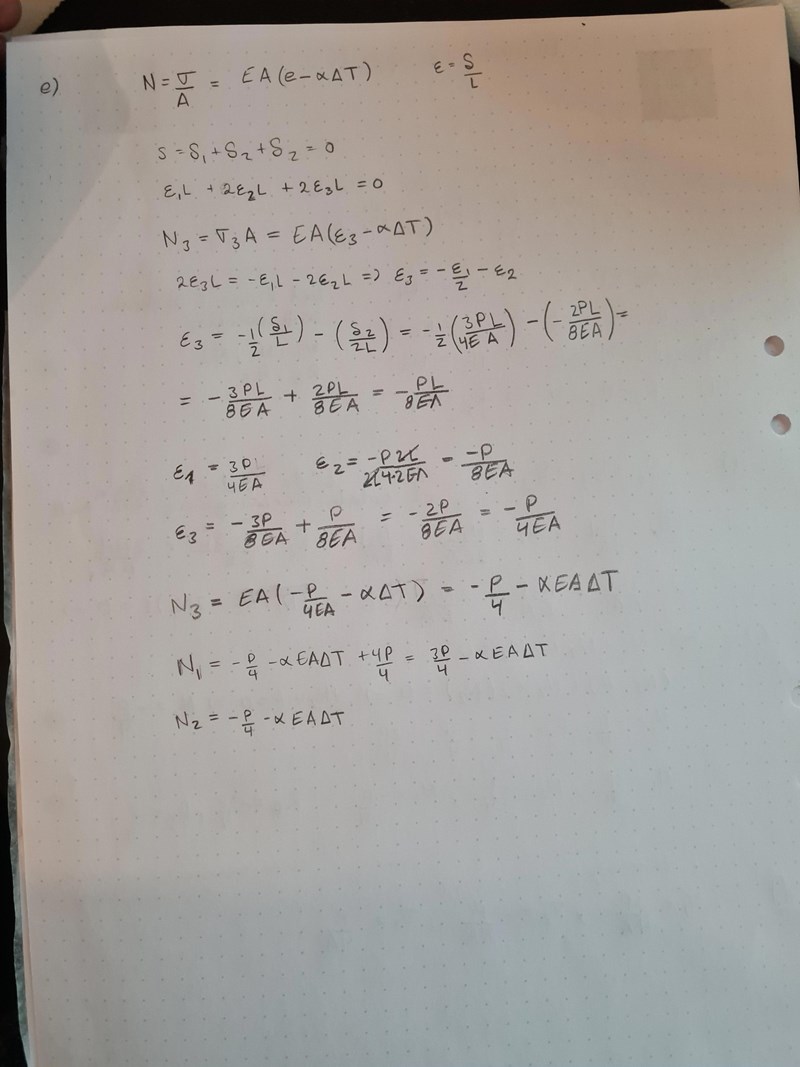 e) N = σ/A = EA(e - αΔT) ε = S/L
s = S₁ + S₂ + S₂ = 0
ε₁L + 2ε₂L + 2ε₃L = 0
N₃ = σ₃A = EA(ε₃ - αΔT)
2ε₃L = -ε₁L - 2ε₂L => ε₃ = -ε₁/2 - ε₂
ε₃ = -1/2(S₁/L) - (S₂/2L) = -1/2(3PL/4EA) - (-2PL/8EA) =
= -3PL/8EA + 2PL/8EA = -PL/8EA
ε₁ = 3P/4EA ε₂ = -P2L/2L4·2EA = -P/8EA
ε₃ = -3P/8EA + P/8EA = -2P/8EA = -P/4EA
N₃ = EA(-P/4EA - αΔT) = -P/4 - αEAΔT
N₁ = -P/4 - αEAΔT + 4P/4 = 3P/4 - αEAΔT
N₂ = -P/4 - αEAΔT